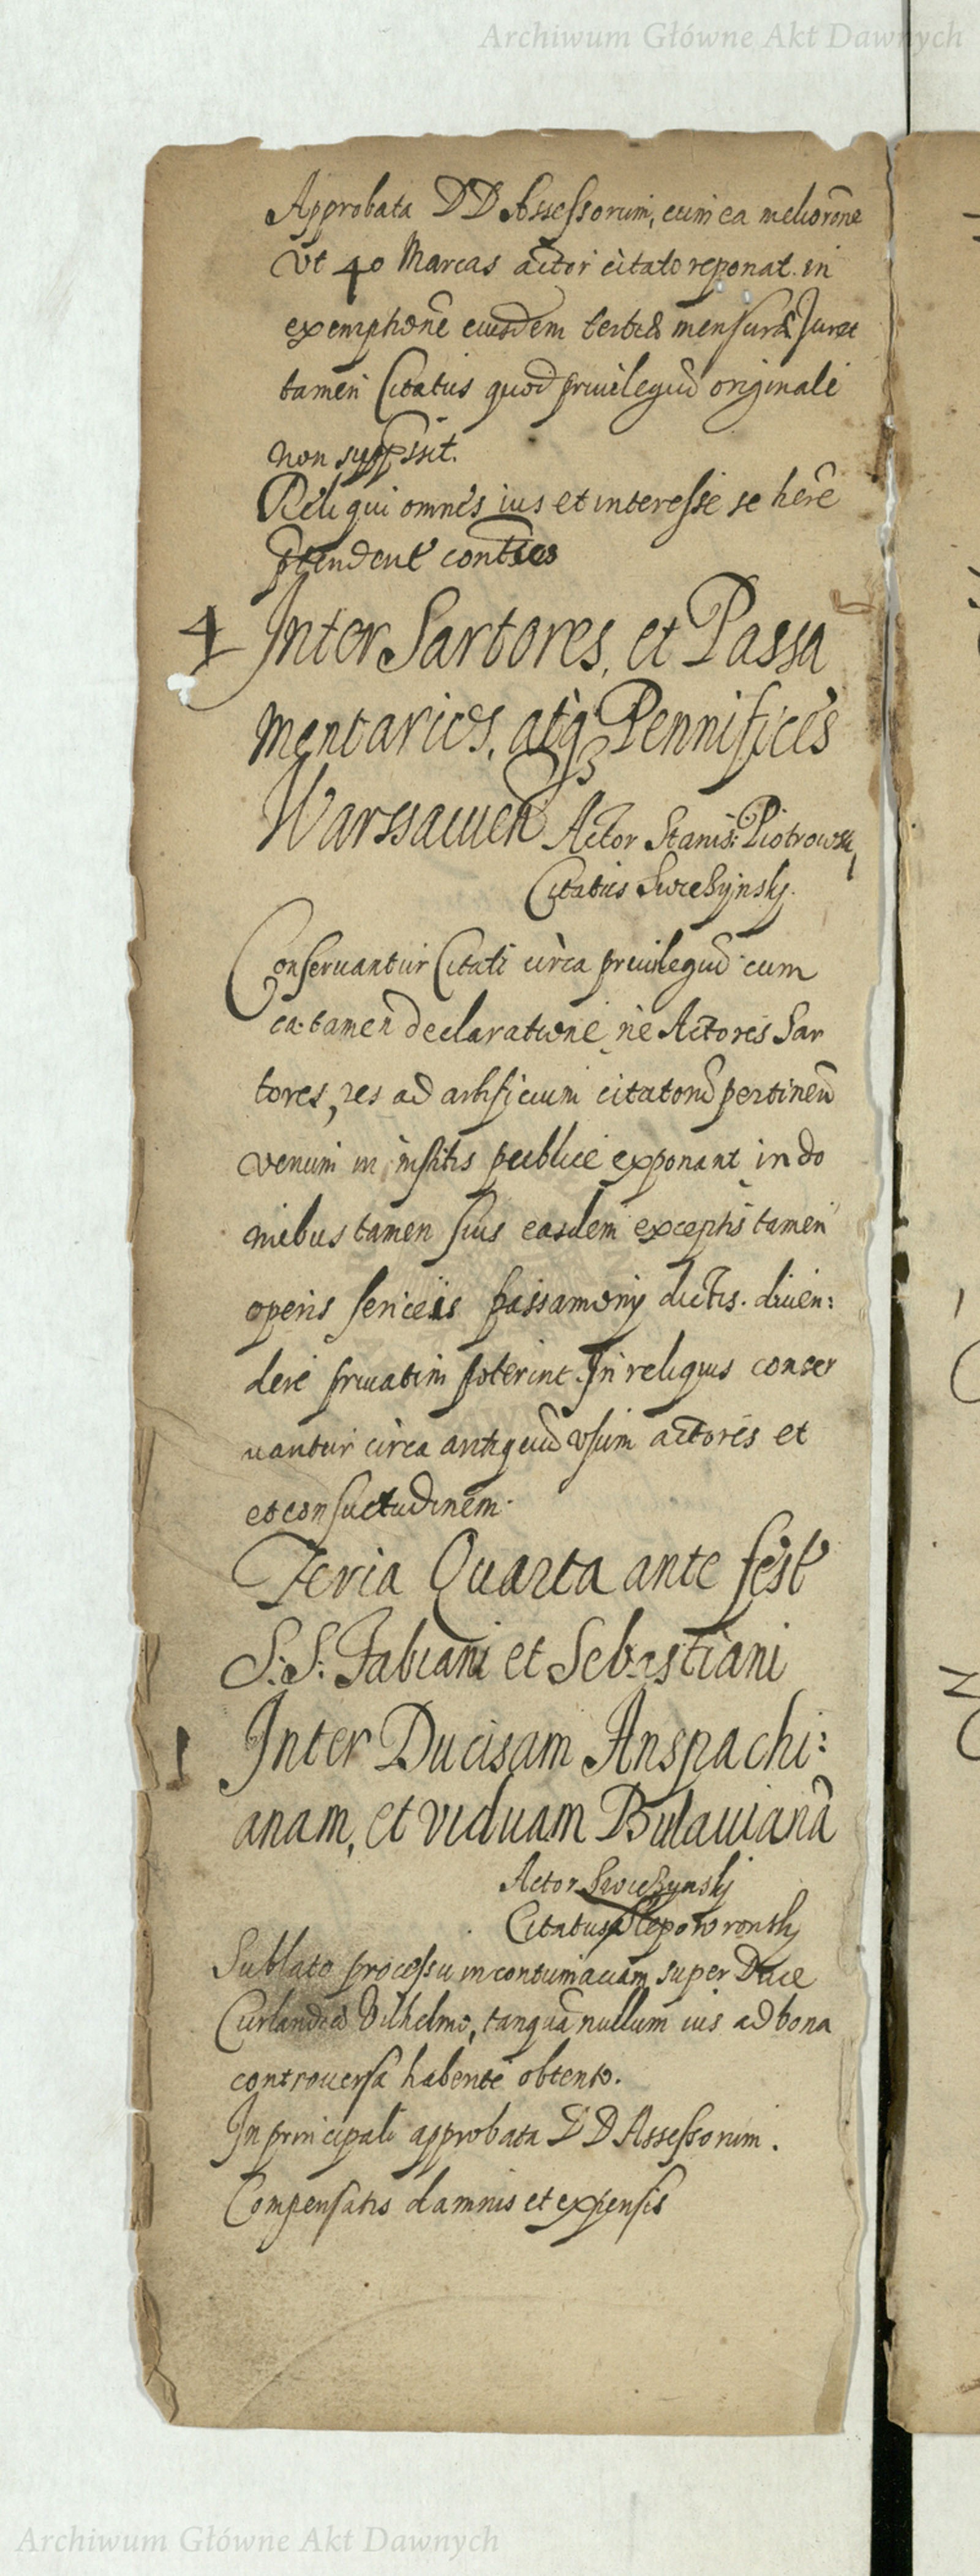 Archiwum Główne Akt Dawnych
Approbata DD Assessorum, cum ea melioroñe
Vt 40 Marcas actor citato reponat in
exemptionē eiusdem mensuræ Juret
tamen Citatus quod priuilegiū originali
non
Reliqui omnes ius et interesse se herē
ptendent
4 Inter Sartores, et Passa
mentarios, atq3 Pennifices
Warssauien Actor Stanis: Piotrowsk,
Citatus Swieżÿnskj.
Conseruantur Citati circa priuilegiū cum
ea tamen declaratione, ne Actores Sar
tores, res ad artificium citatorū pertinen̄
venum in institis publice exponant, in do
mibus tamen suis easdem exceptis tamen
operis sericeis passamony dictis. diuen:
dere priuatim poterint. In reliquis conser
uantur circa antiquū vsum actores et
et consuetudinem.
Feria Quarta ante fest
S: S: Fabiani et Sebastiani
1 Inter Ducissam Anspachi:
anam, et viduam Bulauianā
Actor Swieżynskj
Citatus Slepowronskj
Sublato processu in contumaciam super Duce
Curlandiæ Vilhelmo, tanquā nullum ius ad bona
controuersa habente obtento.
In principali approbata DD Assessorum.
Compensatis damnis et expensis
Archiwum Główne Akt Dawnych